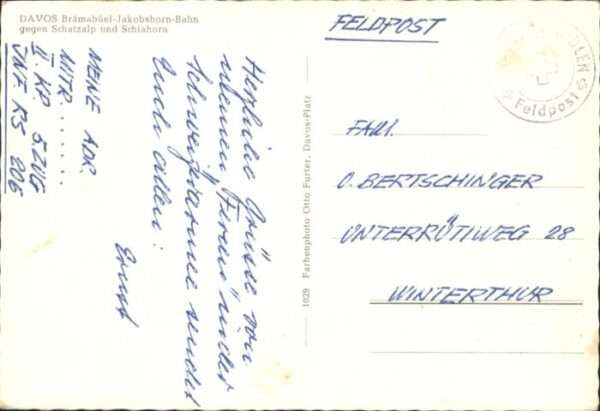 DAVOS Brämabüel-Jakobshorn-Bahn
gegen Schatzalp und Schiahorn
MEINE ADR.
MITR. . . . . .
II. KP. 5. ZUG
INF RS 206
Herzliche Grüsse von
meinen "Ferien" in der
Schweizerarmee sendet
Euch allen:
Ernst
1029 Farbenphoto Otto Furter, Davos-Platz
FELDPOST
Feldpost
FAM.
O. BERTSCHINGER
UNTERRÜTIWEG 28
WINTERTHUR